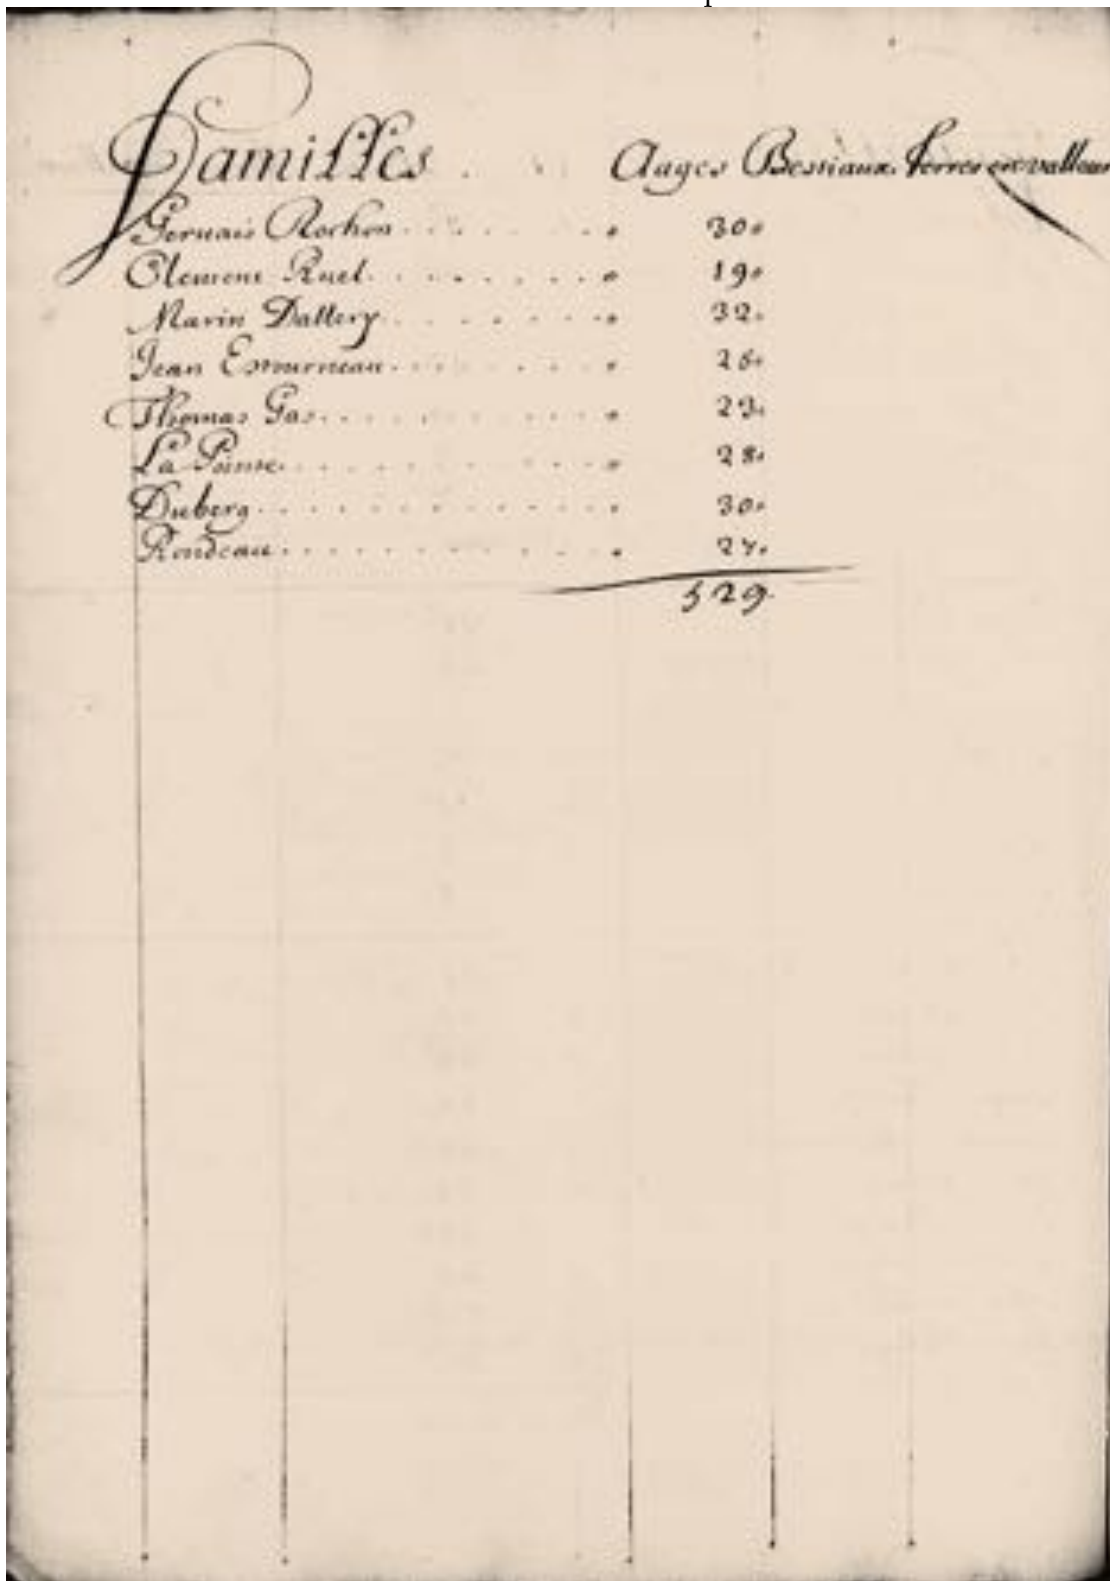 Familles Aages Bestiaux Terres en valleur
Gervais Rochon 30
Clement Ruel 19
Marin Dallery 32
Jean Estourneau 26
Thomas Gas 23
La Pointe 28
Duberg 30
Rondeau 27
529